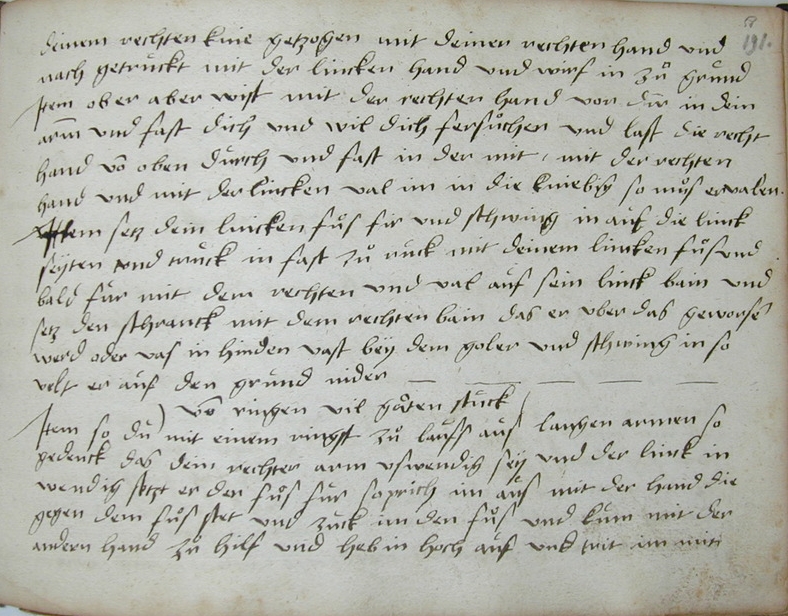 191.
deinem rechten knie getzogen mit deiner rechten hand vnd
nach getruckt mit der lincken hand vnd wirf in zů grund
Item ob er aber wist mit der rechten hand von dir in dein
arm vnd fast dich vnd wil dich fersůchen vnd last die recht
hand vō oben durch vnd fast in der mit, mit der rechten
hand vnd mit der lincken val im in die kniebig so můs er valen.
Item setz dein lincken fůs fir vnd schwing in auf die linck
seyten vnd truck in fast zů ruck mit deinem lincken fůs vnd
bald far mit dem rechten vnd val auf sein linck bain vnd
setz den schranck mit dem rechten bain das er vber das geworfē
werd oder vas in hinden vast bey dem goler vnd schwing in so
velt er auf den grund nider
vō ringen vil gůten stuck
Item so du mit einem ringst zů lauffs aus langen armen so
gedenck das dein rechter arm vswendig sey vnd der linck in
wendig setzt er der fůs fur so prich im aus mit der hand die
gegen dem fůs stet vnd zuck im den fůs vnd kum mit der
andern hand zů hilf vnd heb in hoch auf vnd trit im mit